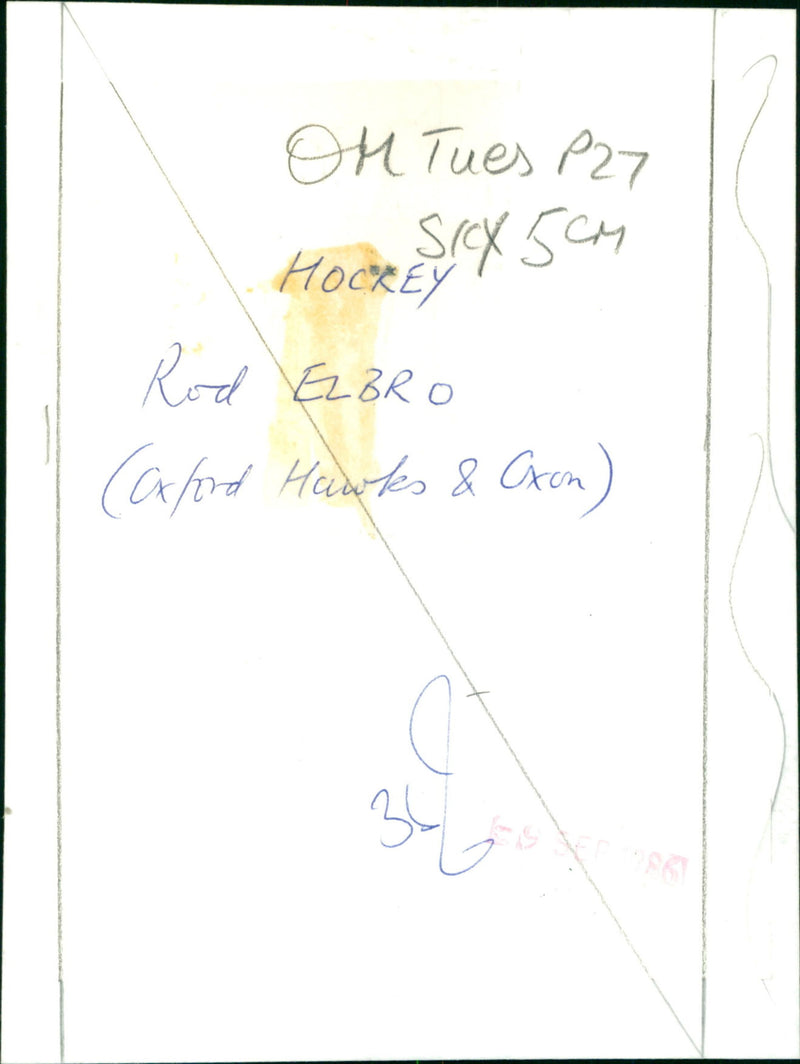 OM Tues P27
S/C X 5CM
HOCKEY
Rod ELBRO
(Oxford Hawks & Oxon)
SEP 1986